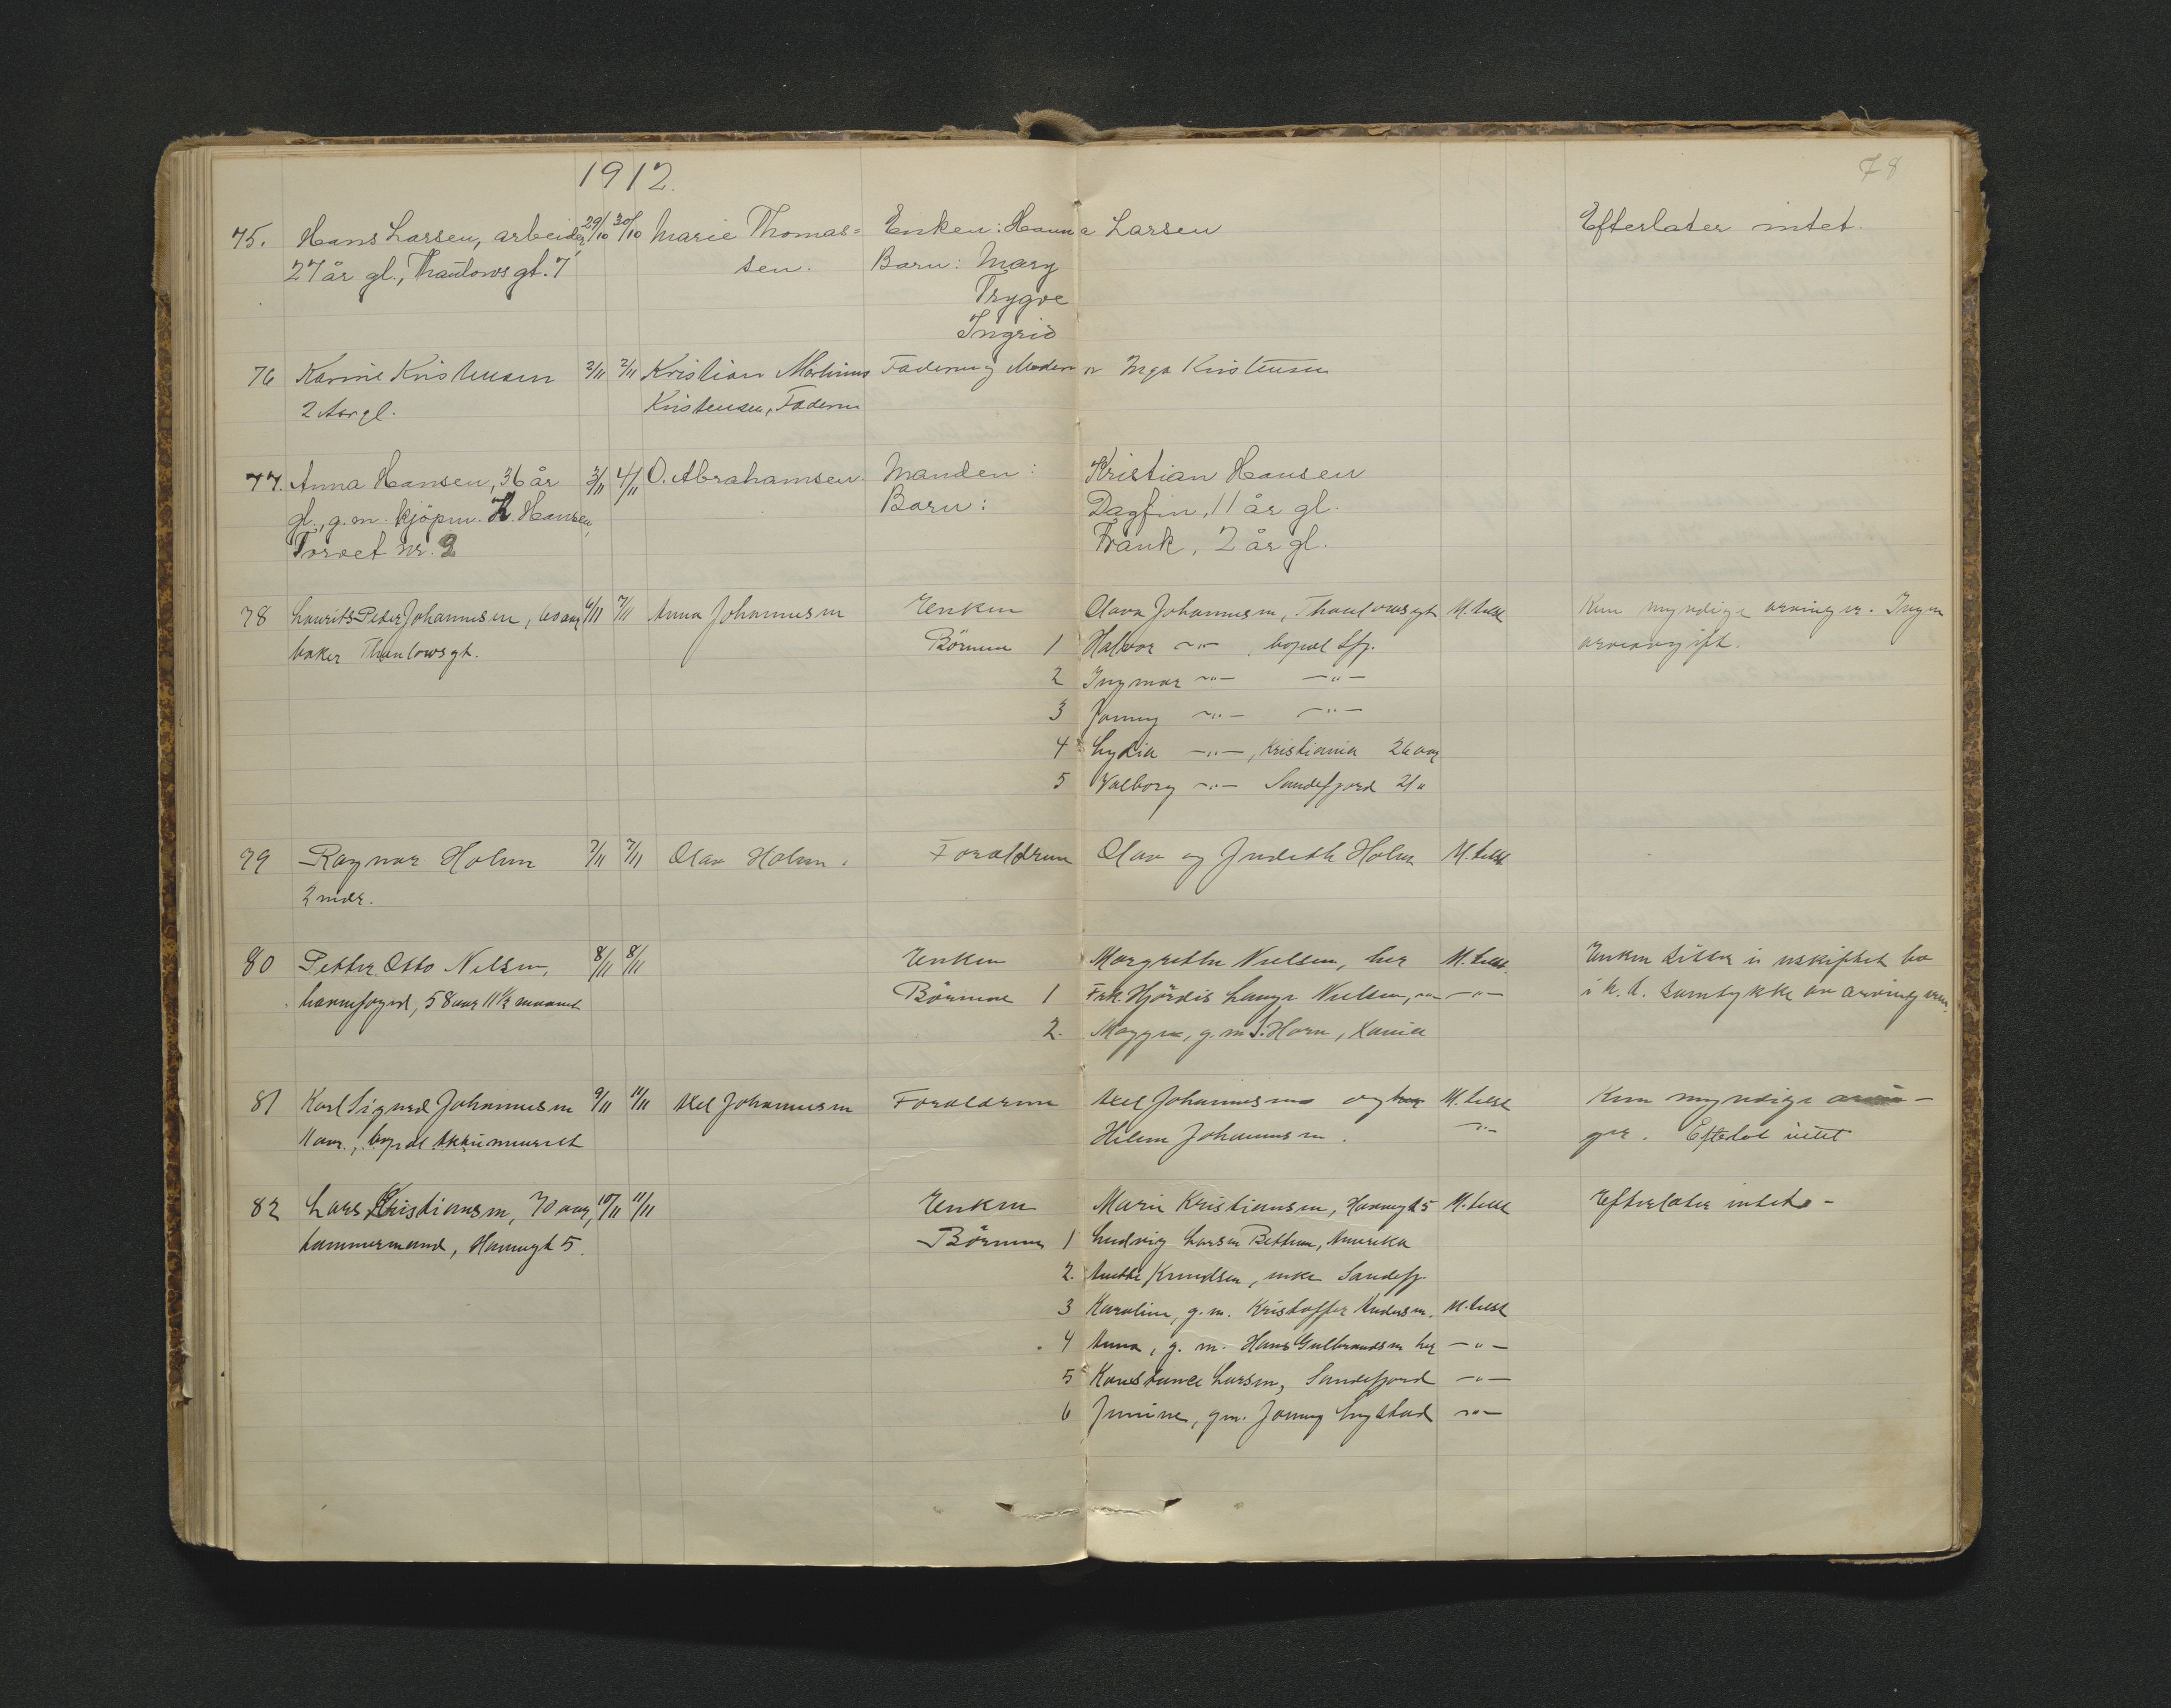 1912.
78
75. Hans Larsen, arbeider 29/10 30/10 Marie Thomas= Enken: Hanna Larsen Efterlater intet.
27 år gl., Thaulows gt. 7 sen. Barn: Mary
Trygve
Ingrid
76 Karine Kristensen 2/11 2/11 Kristian Martinius Faderen og Moderen Inga Kristensen
2 Aar gl. Kristensen, Faderen
77. Anna Hansen, 36 år 3/11 4/11 O. Abrahamsen Manden: Kristian Hansen
gl., g. m. kjöpm. K. Hansen, Barn: Dagfin, 11 år gl.
Torvet nr. 2 Frank, 2 år gl.
78 Laurits Peder Johannesen, 60 aar 6/11 7/11 Anna Johannesen Enken Olava Johannesen, Thaulowsgt M. tilst Kun myndige arvinger. Ingen
baker Thaulowsgt. Börnene 1 Halvor -"- , bopæl Sfj. arveavgift.
2 Ingmar -"- -"-
3 Jonny -"- -"-
4 Lydia -"-, Kristiania 26 aar
5 Valborg -"- Sandefjord 21 "
79 Ragnar Holm 7/11 7/11 Olav Holm. Forældrene Olav og Judith Holm M. tilst
2 mdr.
80 Petter Otto Nilsen, 8/11 8/11 Enken Margrethe Nielsen, her M. tilst. Enken sitter i uskiftet bo
havnefogd, 58 aar 11 1/2 maaned Börnene 1 Frk. Hjördis Lange Nielsen, -"- -"- i h. t. samtykke av arvingerne.
2. Maggie, g. m. S. Horn, Kania
81 Karl Sigurd Johannesen 9/11 11/11 Axel Johannesen Forældrene Axel Johannesen og M. tilst Kun myndige arvin-
11 aar, bopæl Helene Johannesen. -"- ger. Efterlot intet
82 Lars Kristiansen, 70 aar, 10/11 11/11 Enken Marie Kristiansen, Havnegt 5 M. tilst Efterlater intet. -
tømmermand, Havnegt 5. Börnene 1 Ludvig Larsen Bethum, Amerika
2. Anette Knudsen, enke Sandefj.
3 Karoline, g. m. Kristoffer Andersen. M. tilst
4 Anna, g. m. Hans Gulbrandsen her -"-
5 Konstance Larsen, Sandefjord -"-
6 Jenine, g m. Jonny Lystad -"-